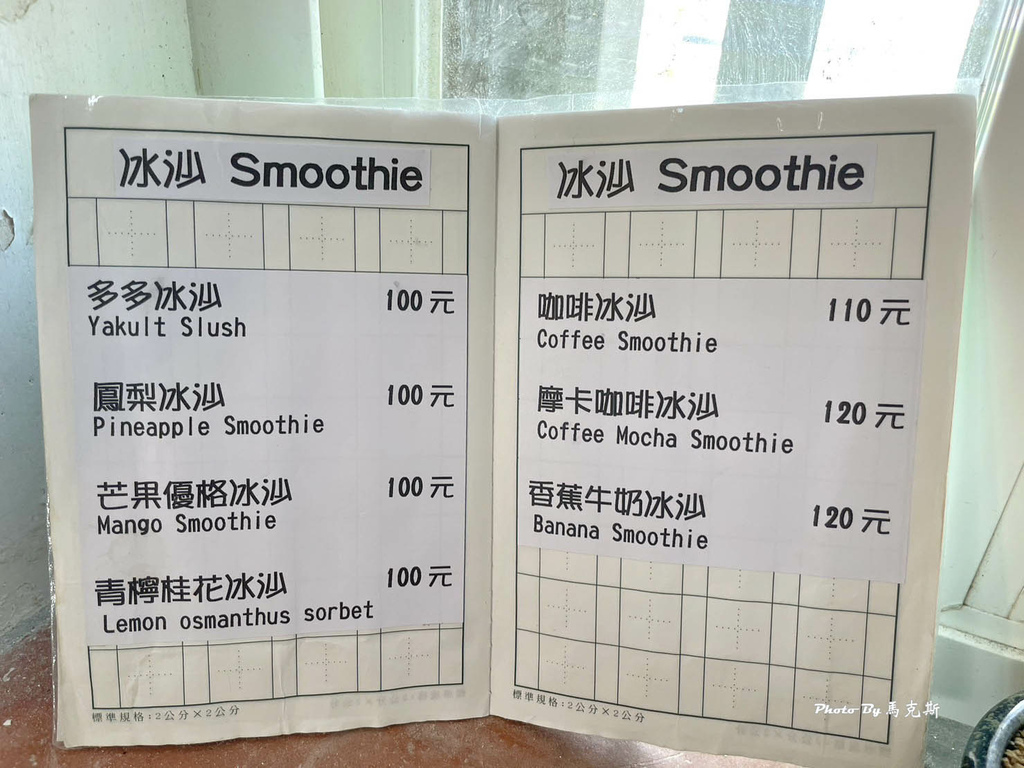 冰沙 Smoothie
多多冰沙 100元
Yakult Slush
鳳梨冰沙 100元
Pineapple Smoothie
芒果優格冰沙 100元
Mango Smoothie
青檸桂花冰沙 100元
Lemon osmanthus sorbet
標準規格:2公分×2公分
冰沙 Smoothie
咖啡冰沙 110元
Coffee Smoothie
摩卡咖啡冰沙 120元
Coffee Mocha Smoothie
香蕉牛奶冰沙 120元
Banana Smoothie
標準規格:2公分×2公分
Photo By 馬克斯